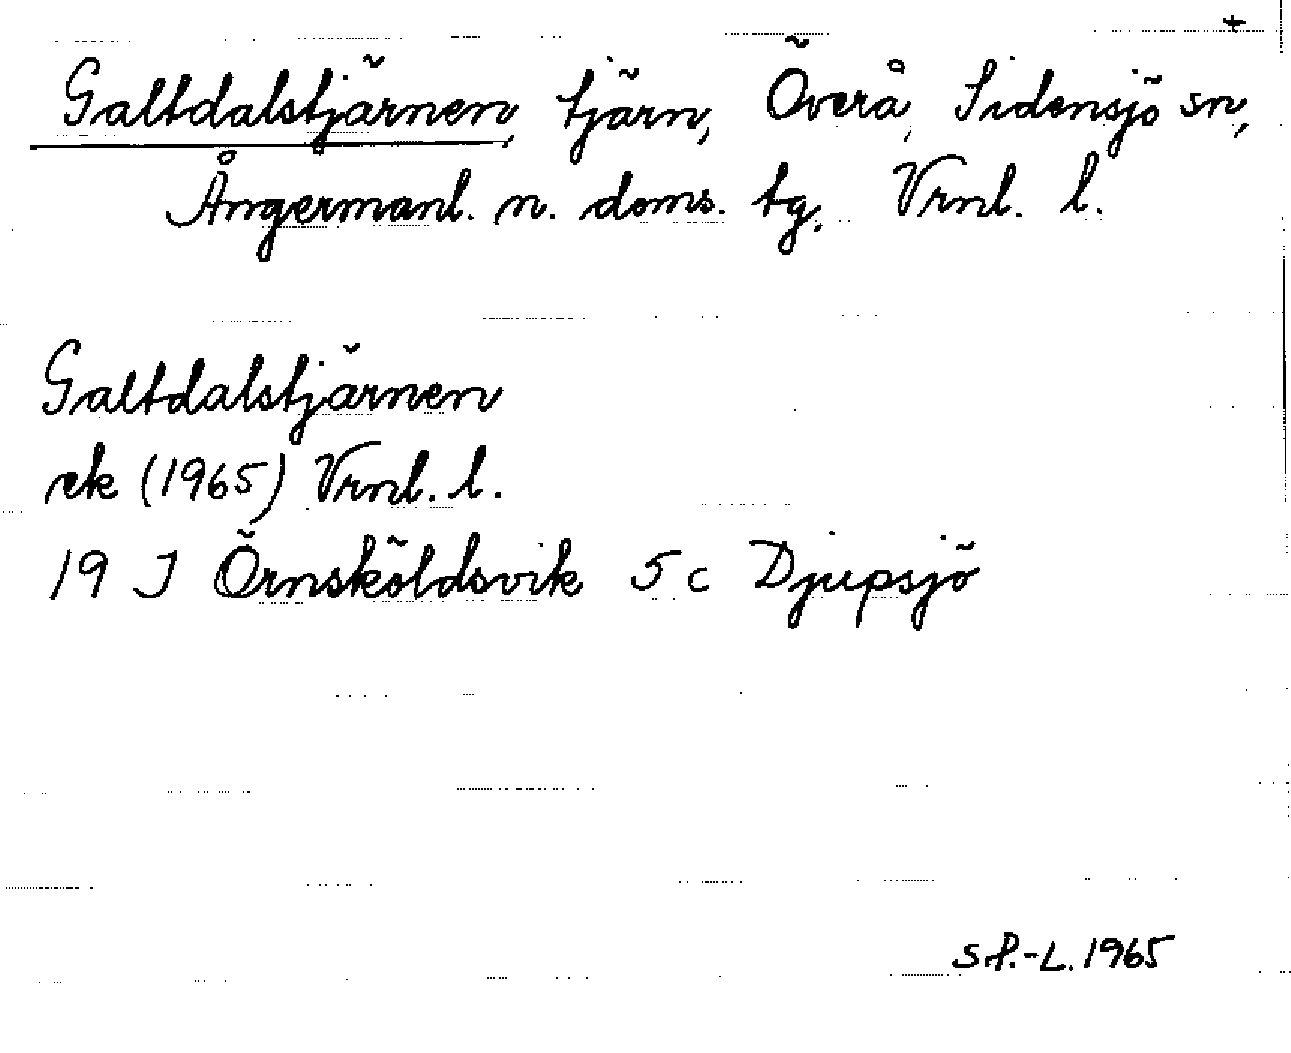 +
Galtdalstjärnen, tjärn, Överå, Sidensjö sn,
Ångermanl. n. doms. tg. Vrnl. l.
Galtdalstjärnen
ek (1965) Vrnl. l.
19 J Örnsköldsvik 5 c Djupsjö
S P.-L. 1965